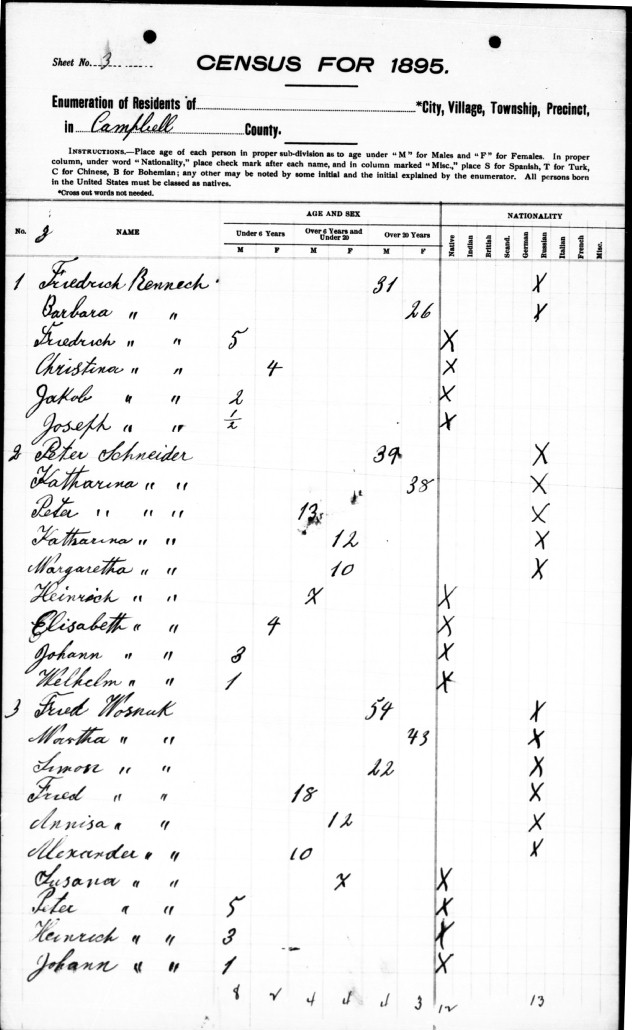 Sheet No. 3
CENSUS FOR 1895.
Enumeration of Residents of *City, Village, Township, Precinct,
in Campbell County.
INSTRUCTIONS.—Place age of each person in proper sub-division as to age under "M" for Males and "F" for Females. In proper
column, under word "Nationality," place check mark after each name, and in column marked "Misc.," place S for Spanish, T for Turk,
C for Chinese, B for Bohemian; any other may be noted by some initial and the initial explained by the enumerator. All persons born
in the United States must be classed as natives.
*Cross out words not needed.
AGE AND SEX NATIONALITY
No. NAME Under 6 Years Over 6 Years and Under 20 Over 20 Years Native Indian British Scand. German Russian Italian French Misc.
M F M F M F
1 Friedrich Rennech 31 X
Barbara " " 26 X
Friedrich " " 5 X
Christina " " 4 X
Jakob " " 2 X
Joseph " " 1/2 X
2 Peter Schneider 39 X
Katharina " " 38 X
Peter " " " 13 X
Katharina " " 12 X
Margaretha " " 10 X
Heinrich " " X X
Elisabeth " " 4 X
Johann " " 3 X
Welhelm " " 1 X
3 Fried Wosnuk 54 X
Martha " " 43 X
Simon " " 22 X
Fried " " 18 X
Annisa " " 12 X
Alexander " " 10 X
Susana " " X X
Peter " " 5 X
Heinrich " " 3 X
Johann " " 1 X
8 2 4 4 4 3 12 13